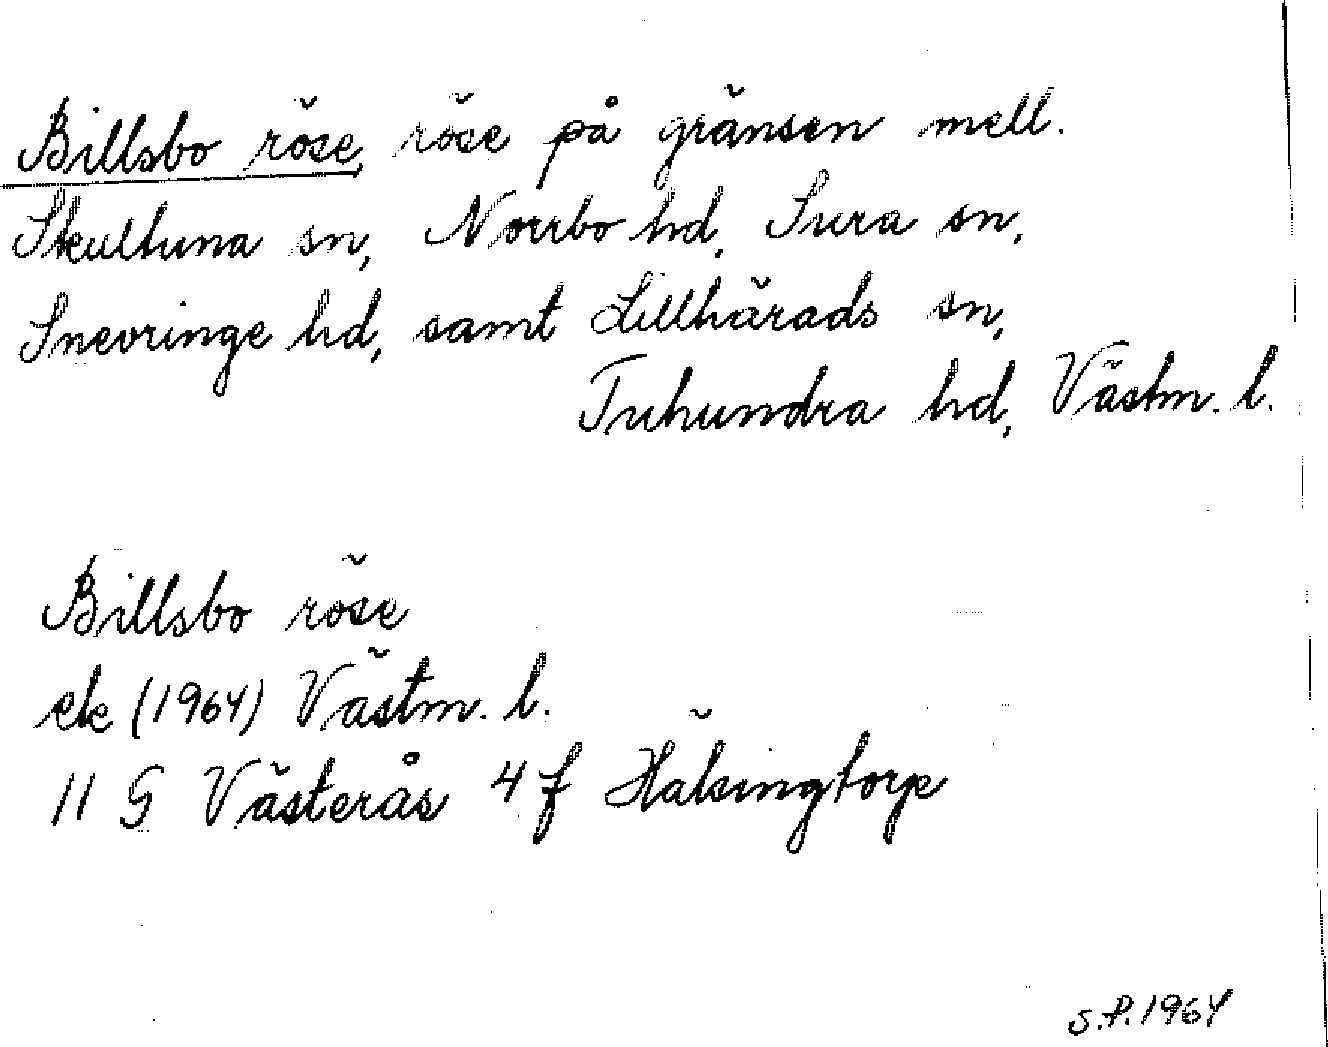 Billsbo röse, röse på gränsen mell.
Skultuna sn, Norrbo hd, Sura sn,
Snevringe hd, samt Lillhärads sn,
Tuhundra hd, Västm. l.
Billsbo röse
ek (1964) Västm. l.
11 G Västerås 4 f Hälsingtorp
S.P. 1964